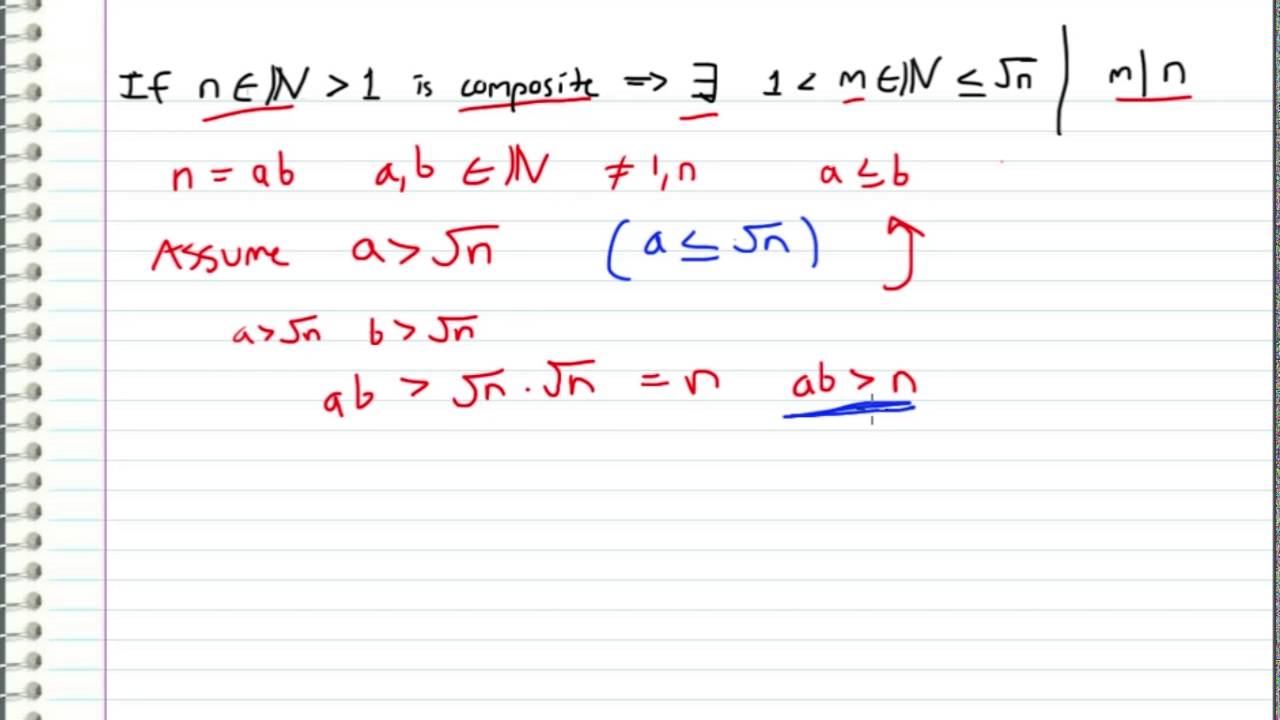 If n ∈ ℕ > 1 is composite => ∃ 1 < m ∈ ℕ ≤ √n | m|n
n = ab a,b ∈ ℕ ≠ 1,n a ≤ b
Assume a > √n (a ≤ √n)
a > √n b > √n
ab > √n · √n = n ab > n